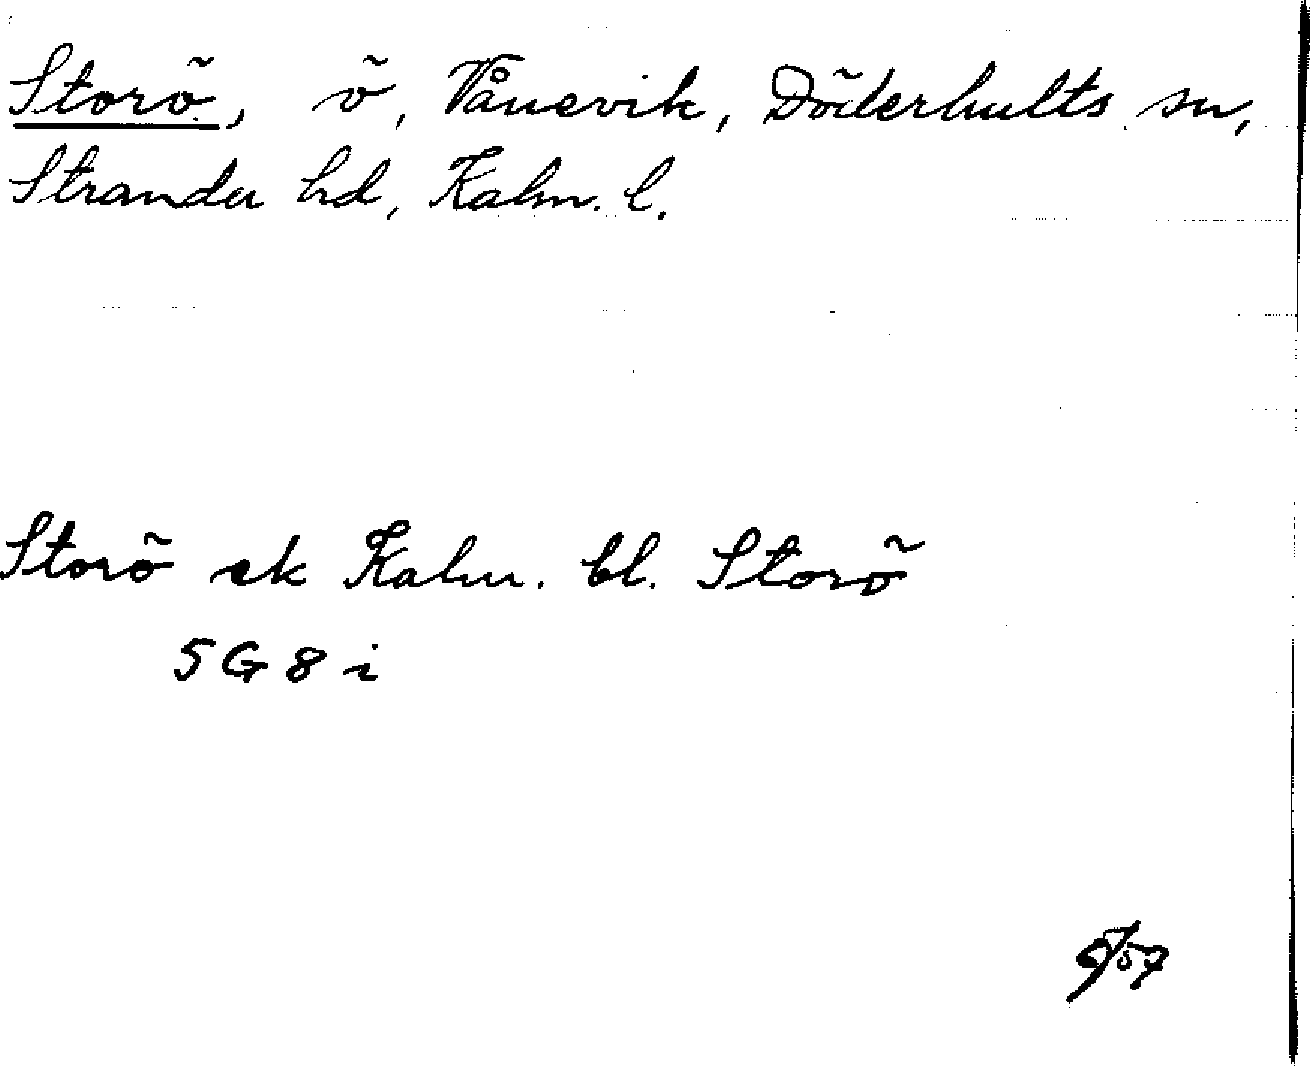 Storö, ö, Vånevik, Döderhults sn,
Stranda hd, Kalm. l.
Storö ek Kalm. bl. Storö
5G8i